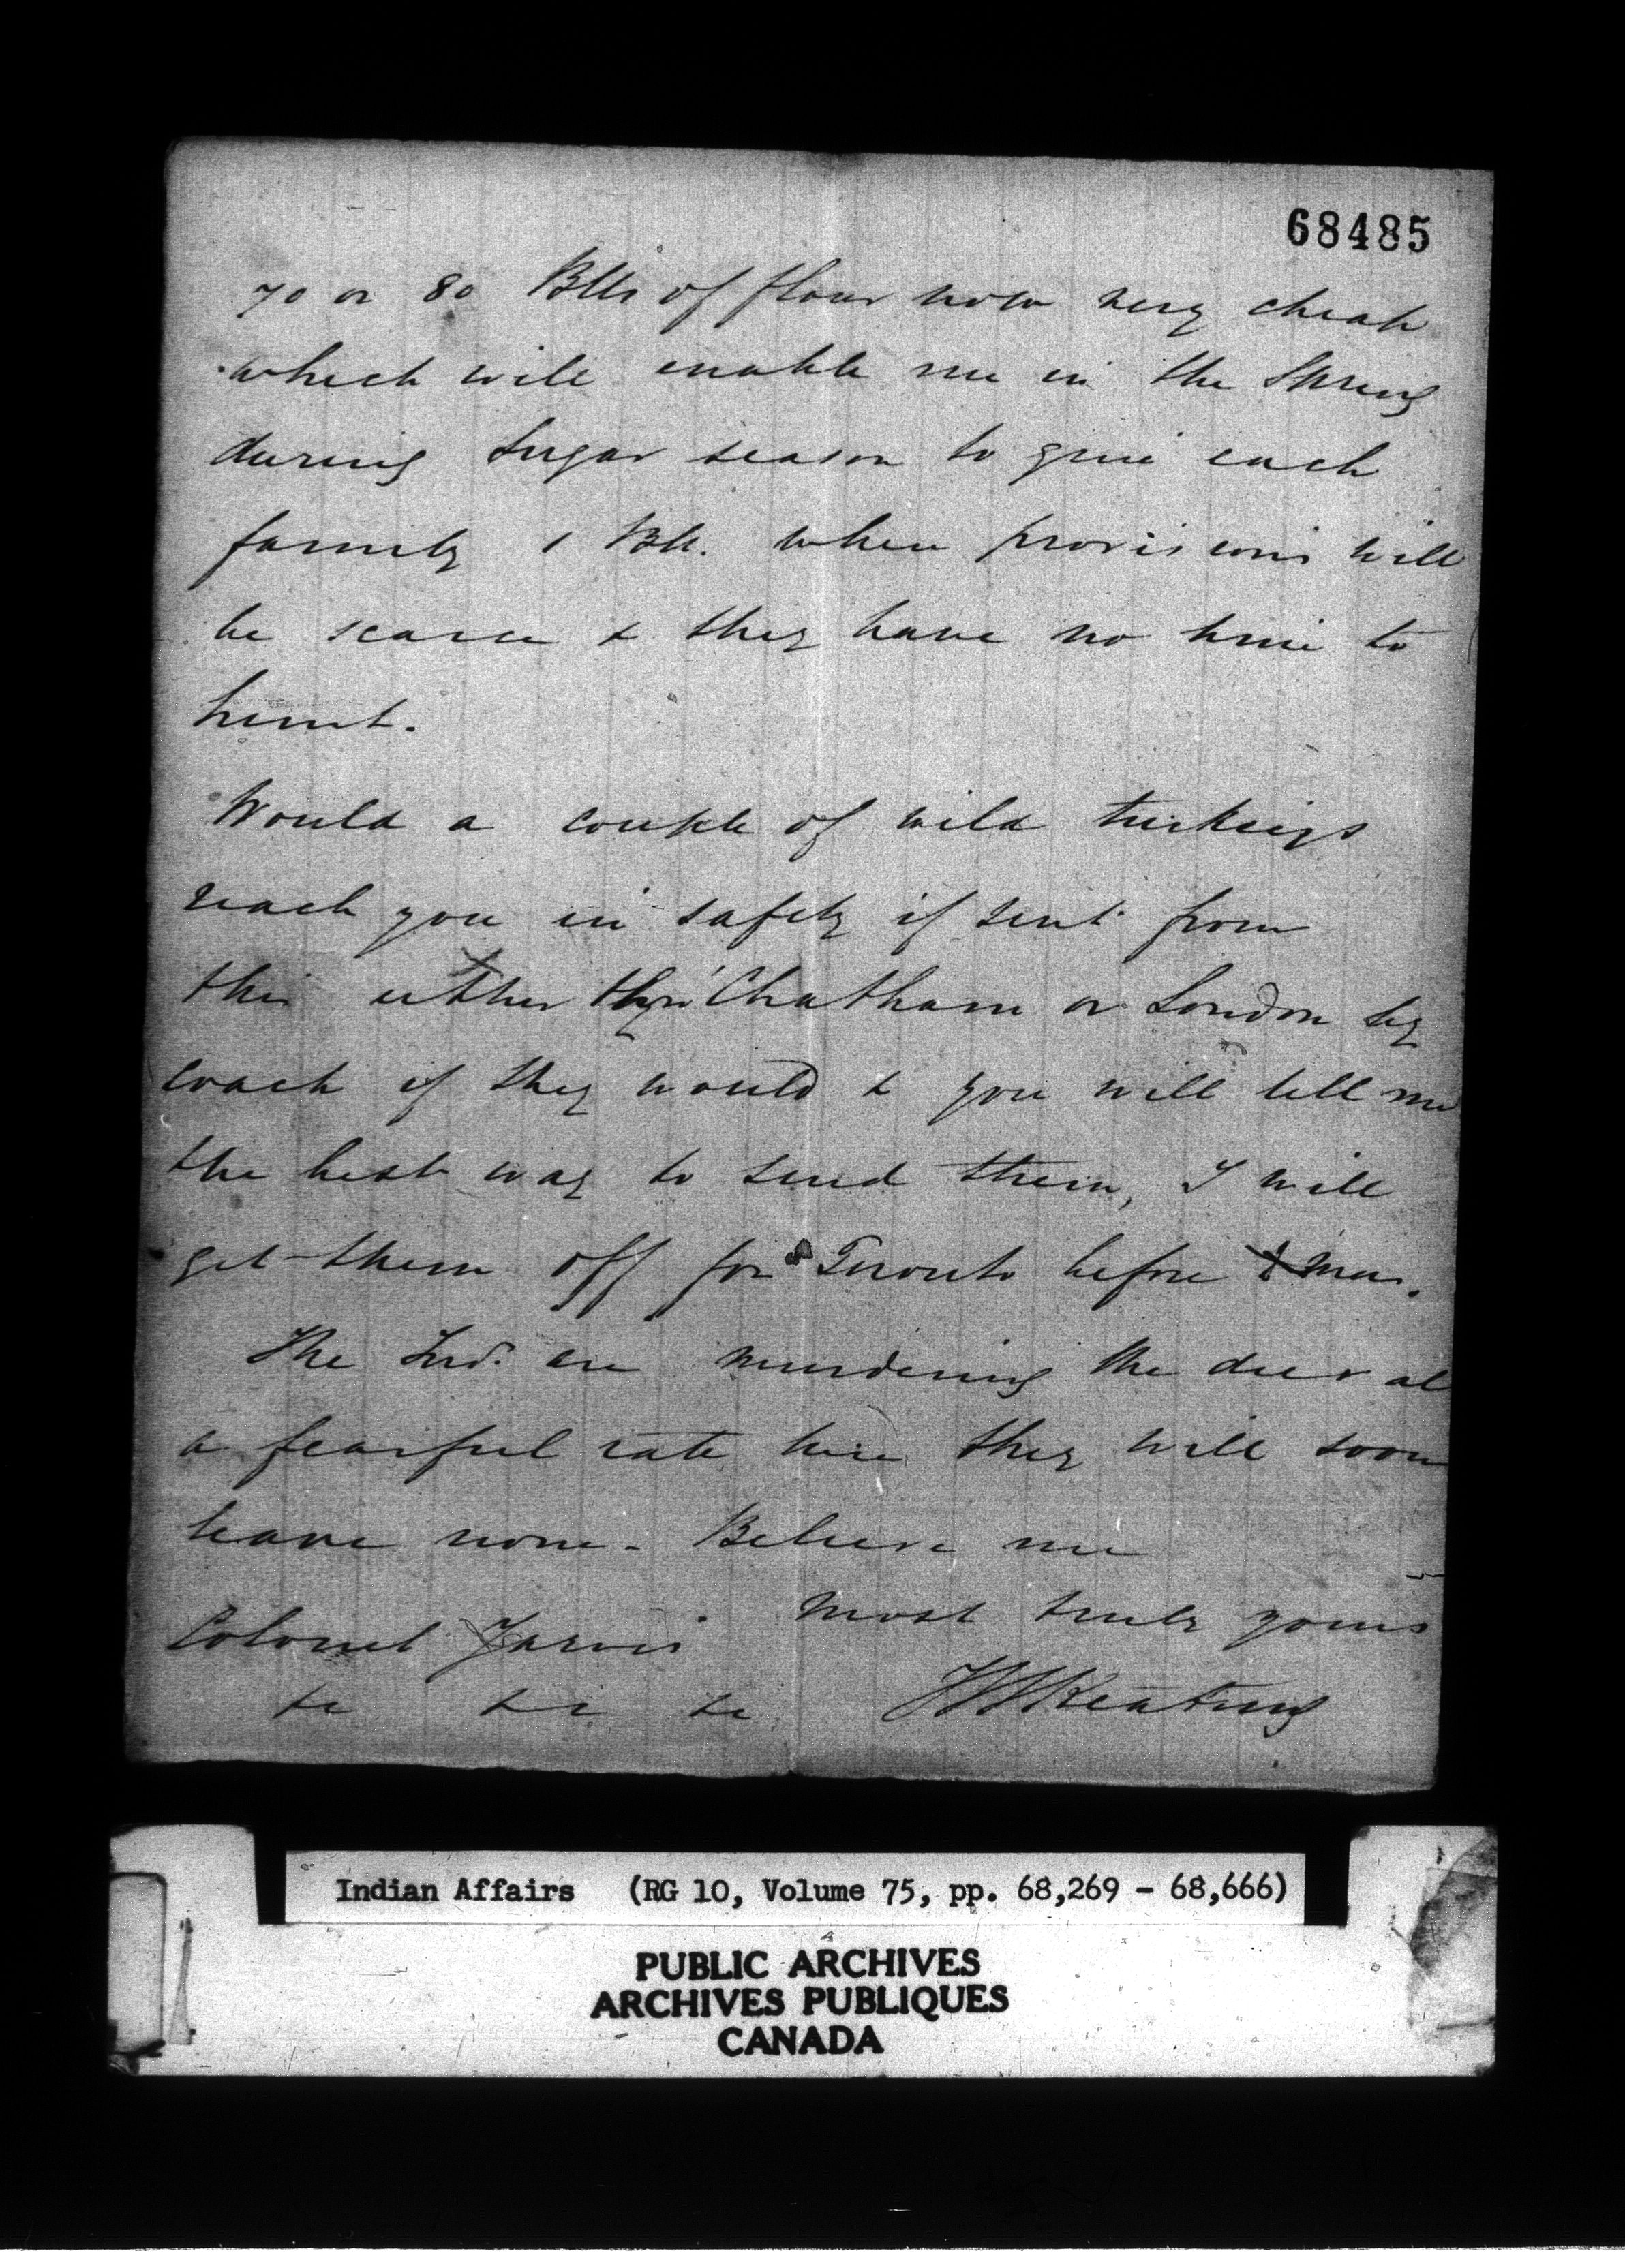 68485
70 or 80 Blls of flour now very cheap
which will enable me in the Spring
during Sugar season to give each
family 1 Bll. when provisions will
be scarce & they have no time to
hunt.
Would a couple of wild turkeys
reach you in safety if sent from
this either thro' Chatham or London by
coach if they would & you will tell me
the best way to send them, I will
get them off for Toronto before Xmas.
The Ind. are murdering the deer at
a fearful rate here they will soon
leave none - Believe me
most truly yours
Colonel Jarvis
JWKeating
&c &c &c
Indian Affairs (RG 10, Volume 75, pp. 68,269 - 68,666)
PUBLIC ARCHIVES
ARCHIVES PUBLIQUES
CANADA